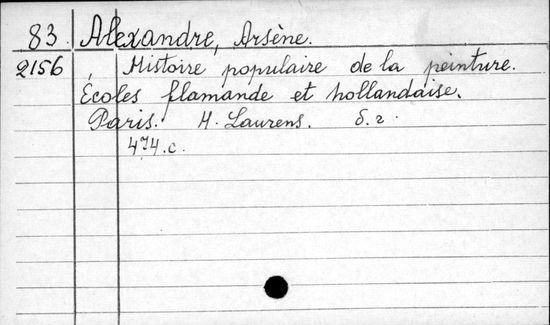 83. Alexandre, Arsène.
2156 Histoire populaire de la peinture.
Écoles flamande et hollandaise.
Paris. H. Laurens. б.г.
474.c.